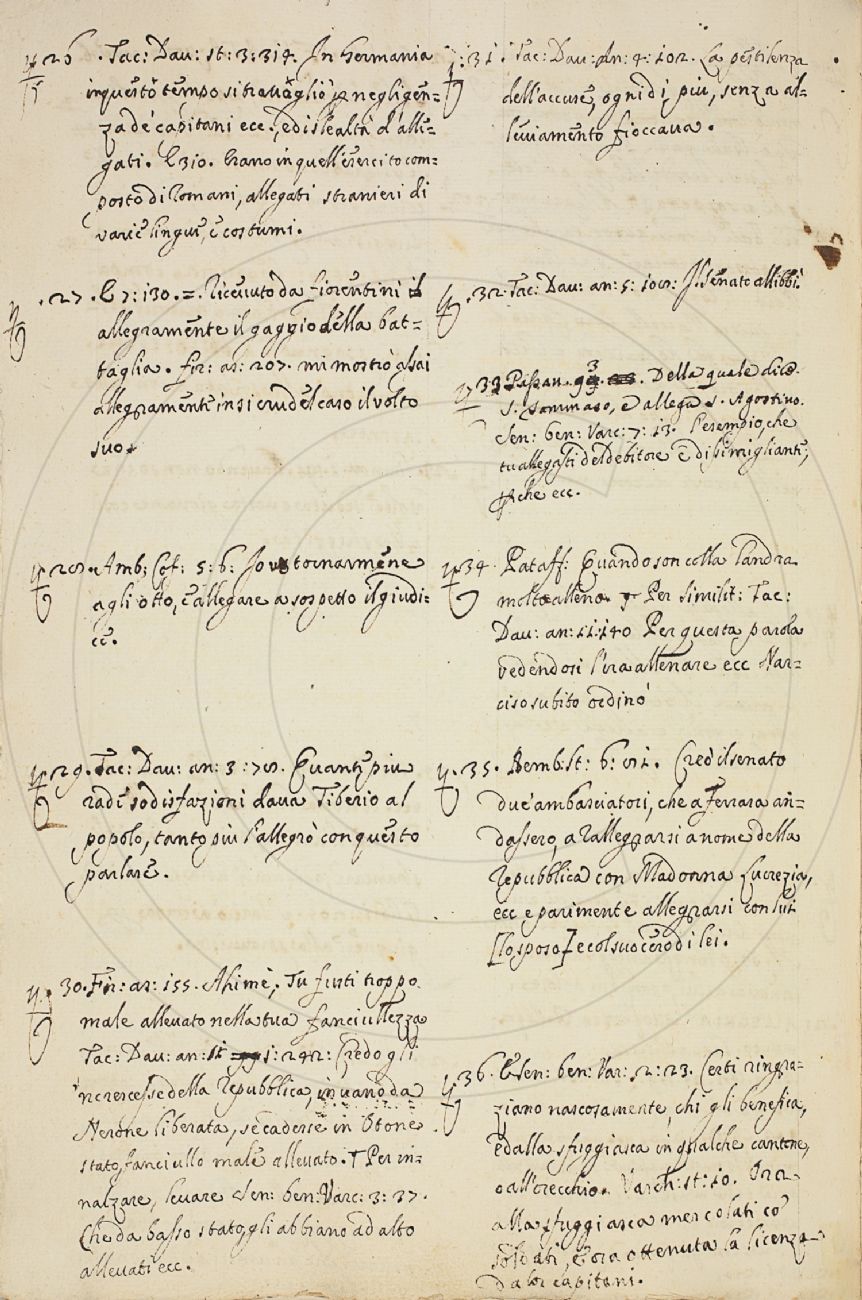 26. Tac: Dav: st: 3: 314. In Germania
in questo tempo si travagliò p negligen=
za de' capitani ecc., e dislealtà d'alle=
gati. E 310. Erano in quell'esercito com=
posto di Romani, allegati stranieri di
varie lingue, e costumi.
27. E 7: 130. =. ricevuto da fiorentini il
allegramente il gaggio della bat=
taglia. fir: as: 207. mi mostrò assai
allegramente in sì crudel caso il volto
suo.
28. Amb: Cof: 5: 6: Io vo tornarmene
agli otto, e allegare a sospetto il giudi:
ce.
29. Tac: Dav: an: 3: 78. Quante più
radi sodisfazioni dava Tiberio al
popolo, tanto più l'allegrò con questo
parlare.
30. Fir: as: 155. Ahimè, Tu fusti troppo
male allevato nella tua fanciullezza
Tac: Dav: an: st 1: 242: Credo gli
'ncrescesse della Repubblica, in vano da
Nerone liberata, se cadesse in Otone
stato fanciullo male allevato. † Per in=
nalzare, levare Sen: ben: Varc: 3: 37.
Che da basso stato, gli abbiano ad alto
allevati ecc.
31. Tac: Dav: An: 4: 102. La pestilenza
dell'accuse, ogni dì più, senza al=
leviamento fioccava.
32. Tac: Dav: an: 5: 108. Il senato allibbì.
33 Passav. 93. Della quale dice
S. Tommaso, e allega S. Agostino.
Sen: ben: Varc: 7: 13. L'esempio, che
tu alleghi del debitore è dissimigliante,
pche ecc.
34. Pataff: Quando son colla landra
molto alleno. Per Similit: Tac:
Dav: an: 11: 140 Per questa parola
vedendosi l'ira allenare ecc Nar=
ciso subito ordinò
35. Bemb: st: 6: 81. Creò il senato
due ambasciatori, che a Ferrara an=
dassero, a rallegrarsi a nome della
Repubblica con Madonna Lucrezia,
ecc e parimente allegrarsi con lui
[lo sposo] e col suocero di lei.
36. E Sen: ben: Var: 2: 23. Certi ringra=
ziano nascosamente, chi gli benefica,
e dalla sfuggiasca in qualche cantone,
o all'orecchio. Varch: st: 10. Ora
alla sfuggiasca mescolati co'
soldati, e ora ottenuta la licenza
da lor capitani.